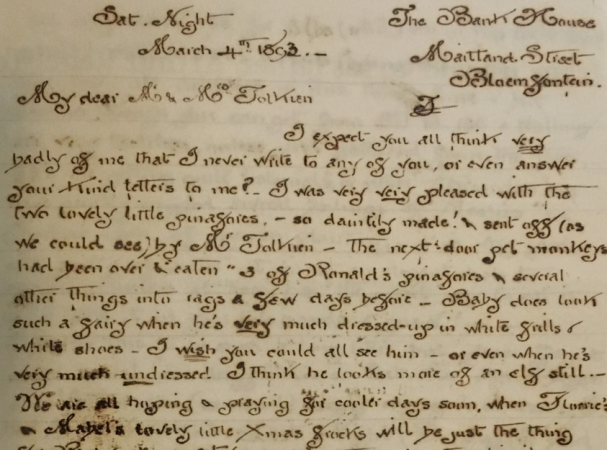 Sat. Night The Bank House
March 4th 1893. - Maitland Street
Bloemfontein.
My dear Mr & Mrs Tolkien
I expect you all think very
badly of me that I never write to any of you, or even answer
your kind letters to me? - I was very very pleased with the
two lovely little pinafores, - so daintily made! & sent off (as
we could see) by Mr Tolkien - The next-door pet monkeys
had been over & eaten 3 of Ronald's pinafores & several
other things into rags a few days before - Baby does look
such a fairy when he's very much dressed-up in white frills &
white shoes - I wish you could all see him - or even when he's
very much undressed I think he looks more of an elf still. -
We are all hoping & praying for cooler days soon, when Florrie's
& Mabel's lovely little Xmas frocks will be just the thing